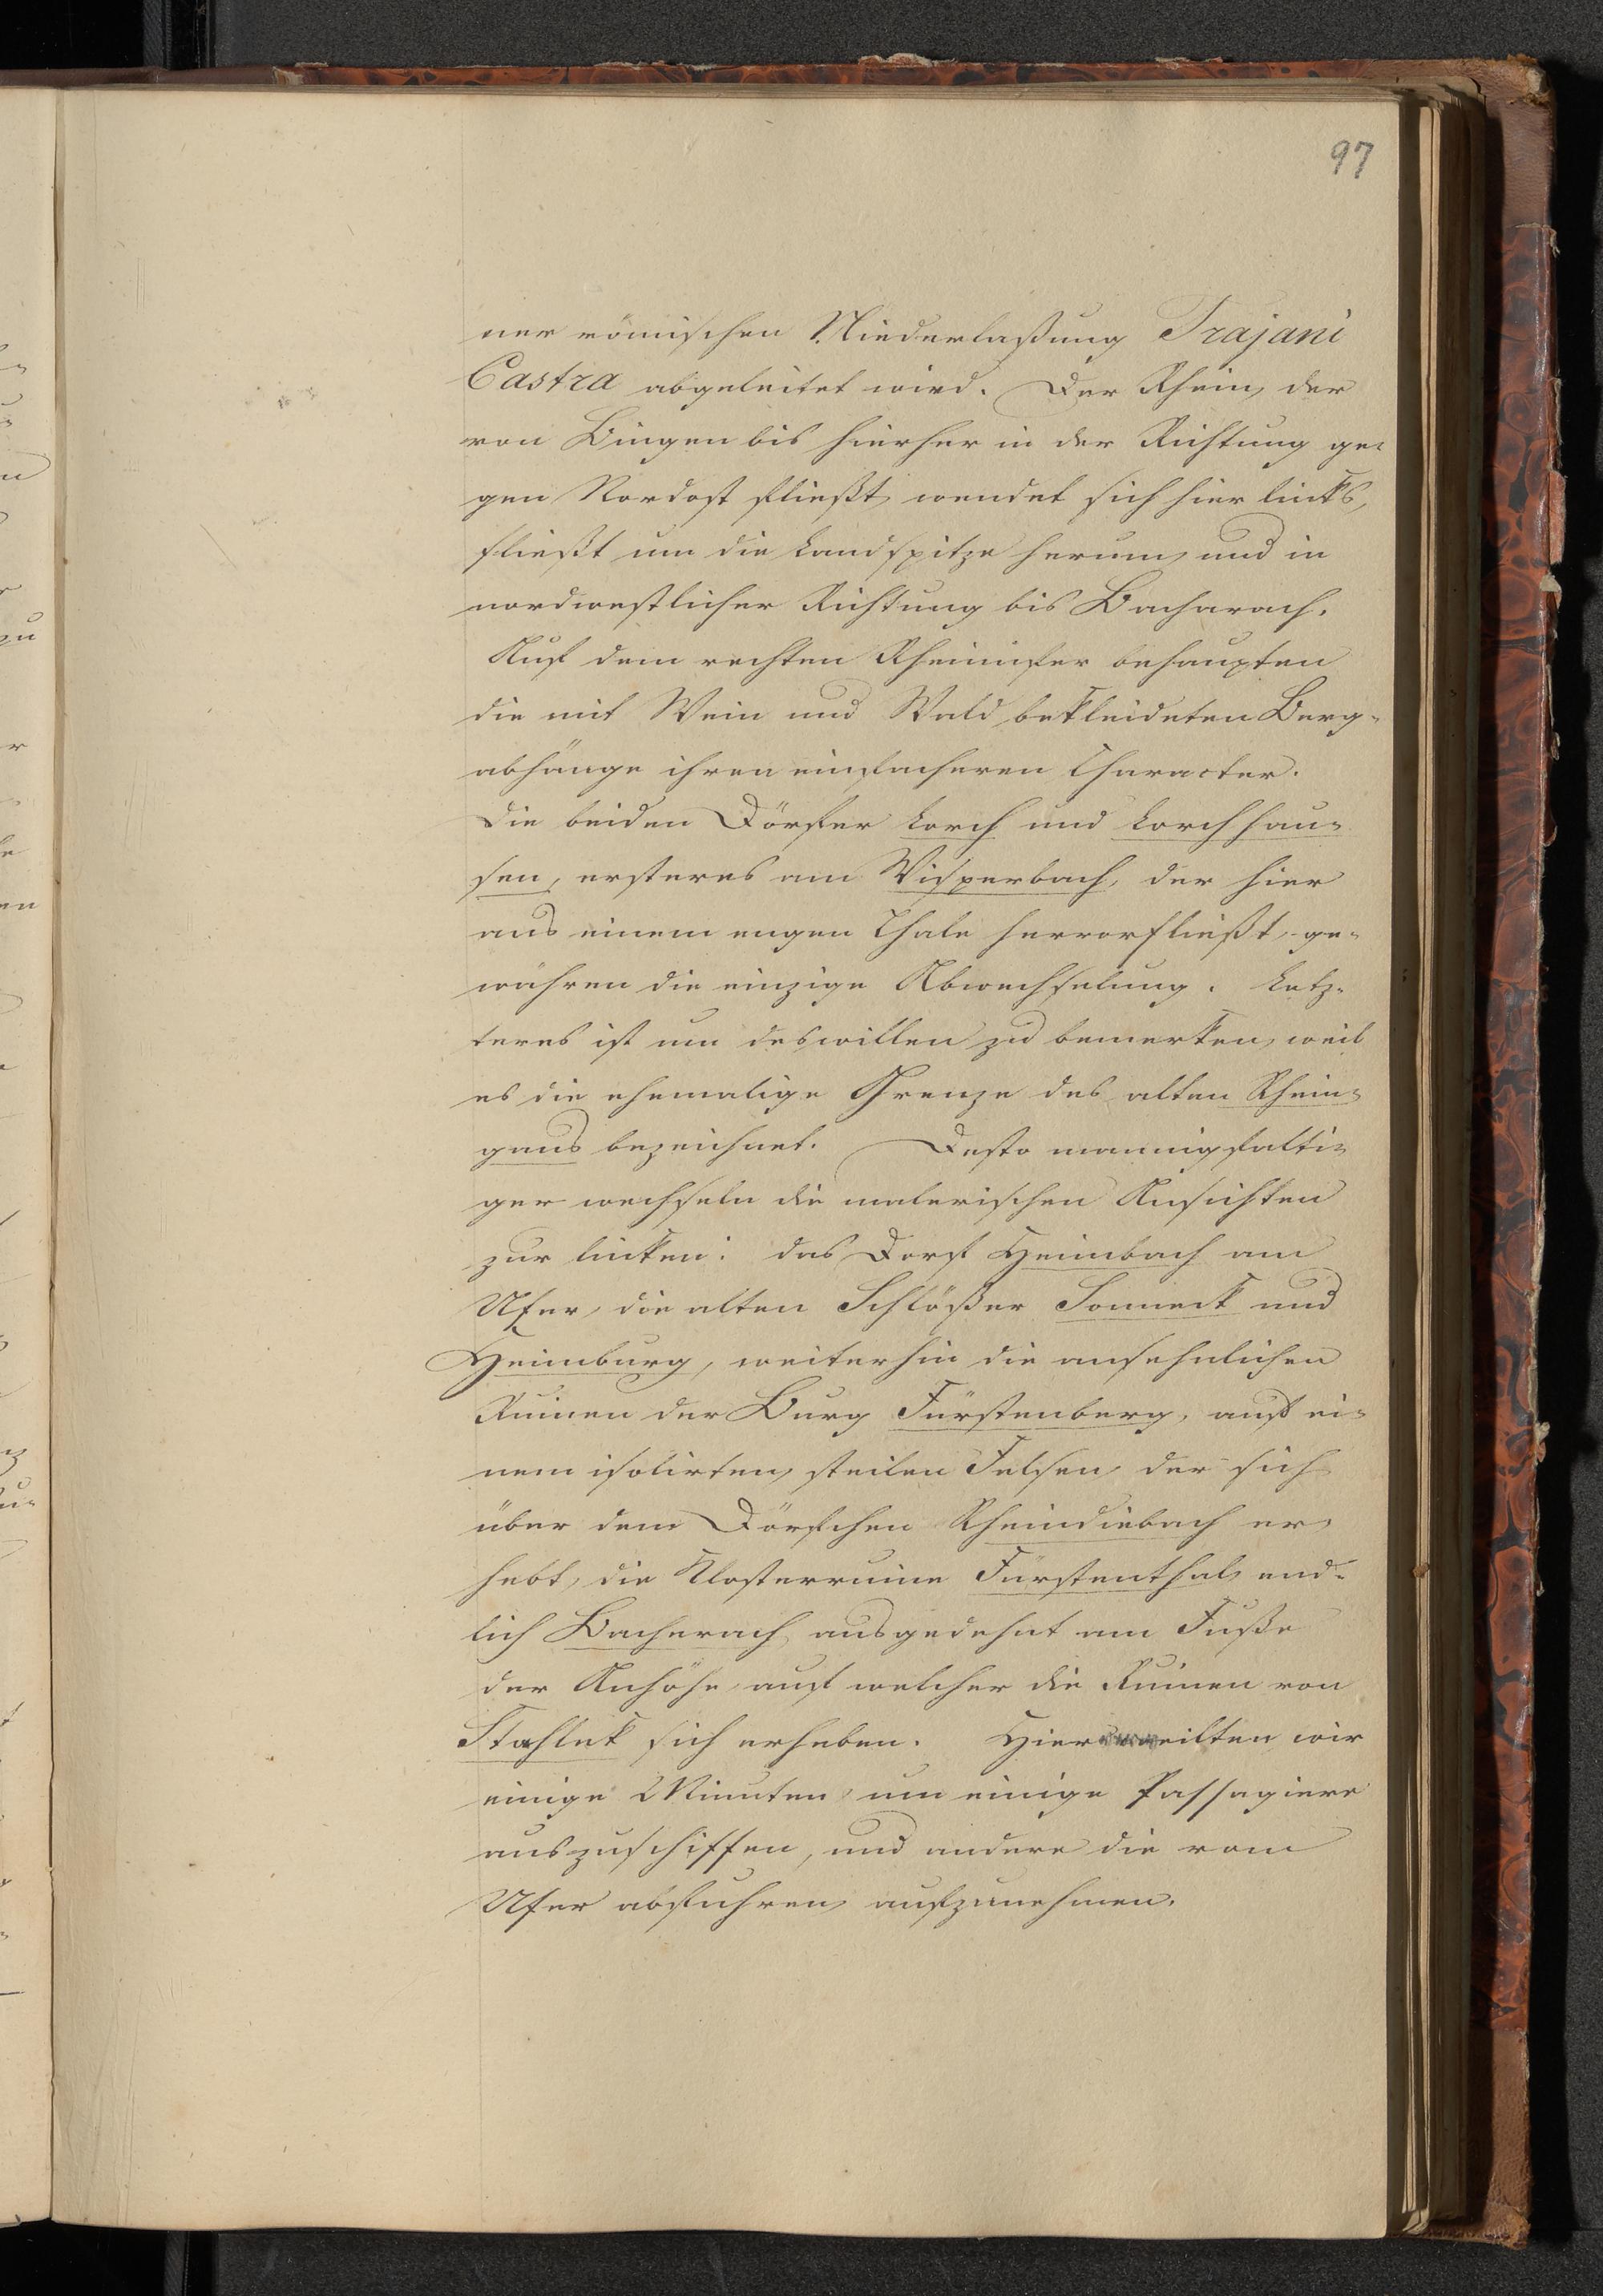 97
ner römischen Niederlaßung Trajani
Castra abgeleitet wird. Der Rhein, der
von Bingen bis hierher in der Richtung ge-
gen Nordost fließt, wendet sich hier links,
fließt um die Landspitze herum, und in
nordwestlicher Richtung bis Bacharach.
Auf dem rechten Rheinufer behaupten
die mit Wein und Wald bekleideten Berg-
abhänge ihren einfacheren Character.
Die beiden Dörfer Lorch und Lorchhau-
sen, ersteres am Wisperbach, der hier
aus einem engen Thale hervorfließt, ge-
währen die einzige Abwechselung. Letz-
teres ist um deswillen zu bemerken, weil
es die ehemalige Grenze des alten Rhein-
gaus bezeichnet. Desto mannigfalti-
ger wechseln die malerischen Ansichten
zur linken: das Dorf Heimbach am
Ufer, die alten Schlößer Sonneck und
Heimburg, weiterhin die ansehnlichen
Ruinen der Burg Fürstenberg, auf ei-
nem isolirten, steilen Felsen, der sich
über dem Dörfchen Rheindiebach er-
hebt, die Klosterruine Fürstenthal, end-
lich Bacherach, ausgedehnt am Fuße
der Anhöhe, auf welcher die Ruinen von
Stahlek sich erheben. Hier weilten wir
einige Minuten, um einige Passagiere
auszuschiffen, und andere die vom
Ufer abfuhren, aufzunehmen.